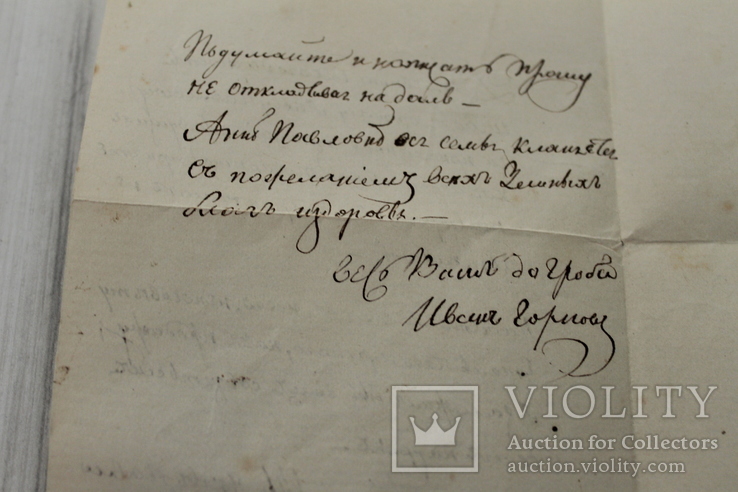 Подумайте и начать прошу
не откладывая на даль –
Анне Павловне вся семья кланяется
съ пожеланiемъ всехъ земныхъ
благъ и здоровья. –
весь Вашъ до гроба
Иванъ
VIOLITY
Auction for Collectors
auction.violity.com